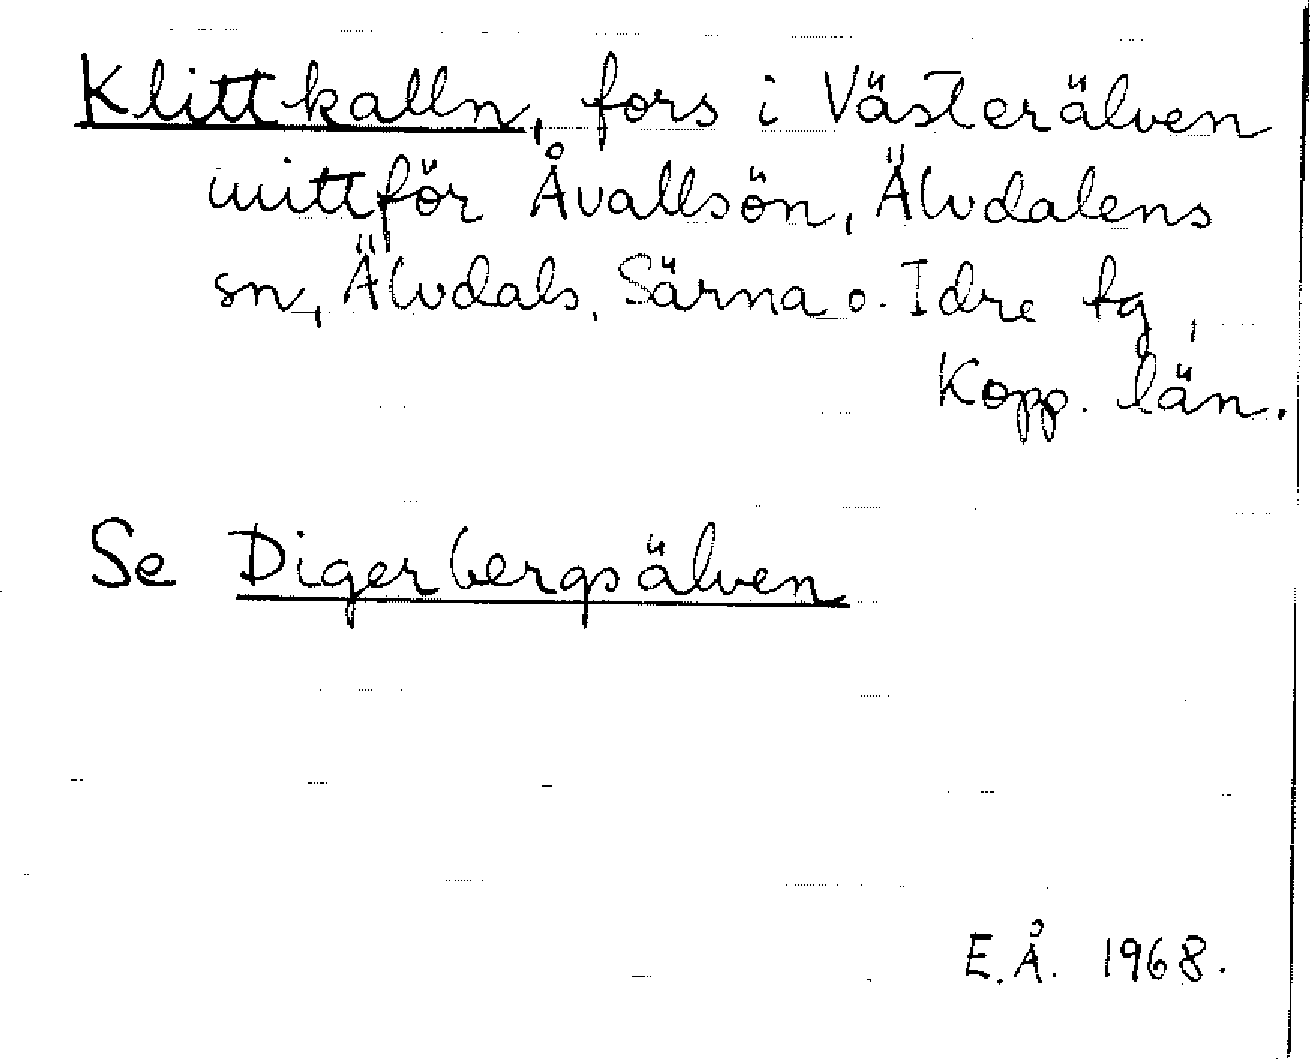 Klittkalln, fors i Västerälven
mittför Åvallsön, Älvdalens
sn, Älvdals, Särna o. Idre tg,
Kopp. län.
Se Digerbergsälven
E.Å. 1968.